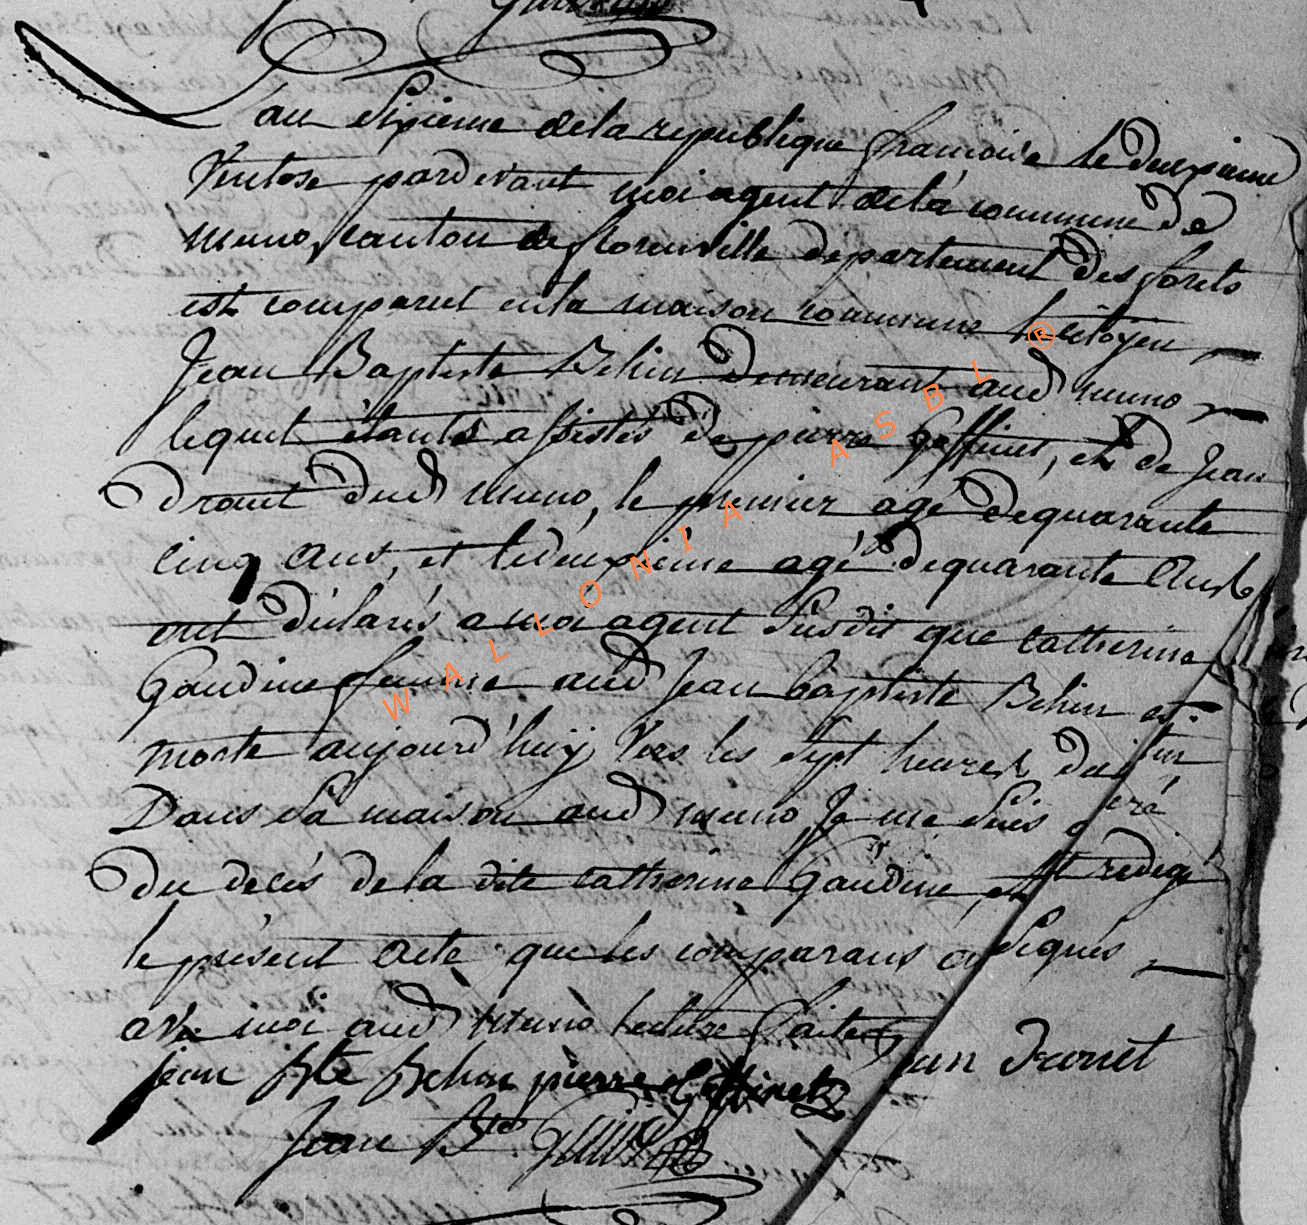 L'an sixieme de la republique francoise le deuxieme
Ventose pardevant moi agent de la commune de
muno, canton de florenville departement des forets
est comparut en la maison commune le citoyen
Jean Baptiste Behin demeurant aud muno
lequel étants assistés de pierre goffinet, et de Jean
Drouet dud muno, le premier agé de quarante
cinq ans, et le deuxième agé de quarante ans
ont déclarés a moi agent susdit que catherine
Gaudine femme aud Jean baptiste Behin est
morte aujourd'huy vers les sept heures du
Dans sa maison aud muno, Je me suis
du décés de la dite catherine Gaudine, et redigé
le présent acte que les comparans signés
avec moi aud muno lecture faite
jean Bte Behin pierre Goffinet jean drouet
Jean Bte
WALLONIA ASBL ®